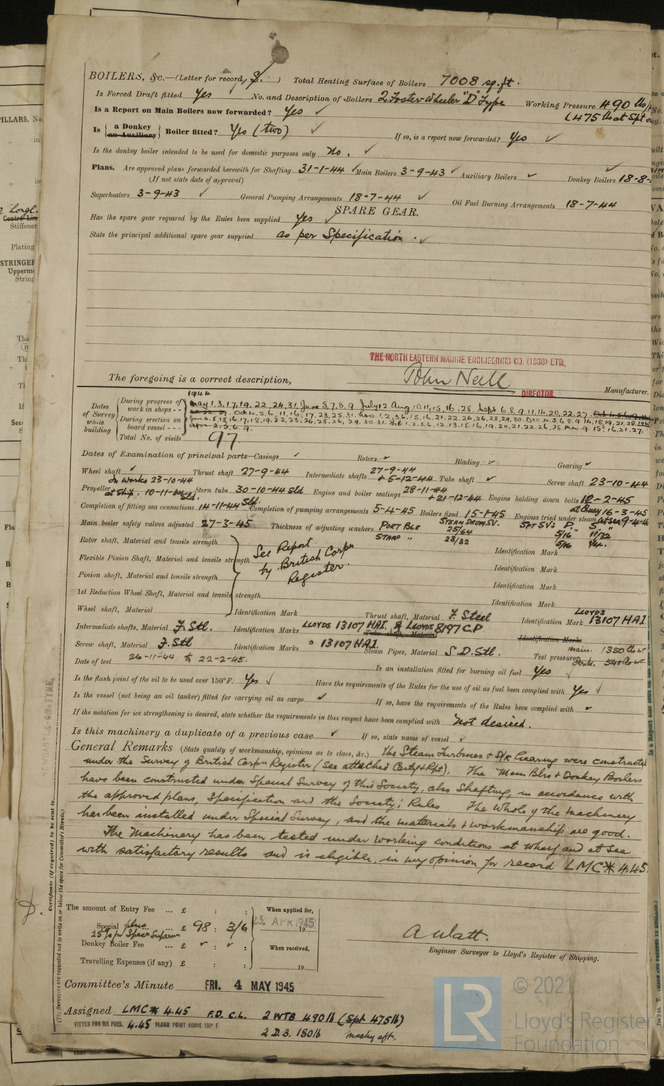 BOILERS, &c.—(Letter for record S. ) Total Heating Surface of Boilers 7008 sq.ft.
Is Forced Draft fitted Yes No. and Description of Boilers 2 Foster Wheeler "D" Type Working Pressure 490 lb
(475 lb at Spt
Is a Report on Main Boilers now forwarded? Yes ✓
Is { a Donkey or Auxiliary } Boiler fitted? Yes (two) ✓ If so, is a report now forwarded? Yes ✓
Is the donkey boiler intended to be used for domestic purposes only No. ✓
Plans. Are approved plans forwarded herewith for Shafting 31-1-44 ✓ Main Boilers 3-9-43 ✓ Auxiliary Boilers ✓ Donkey Boilers 18-8-
(If not state date of approval)
Superheaters 3-9-43 ✓ General Pumping Arrangements 18-7-44 ✓ Oil Fuel Burning Arrangements 18-7-44
SPARE GEAR.
Has the spare gear required by the Rules been supplied Yes ✓
State the principal additional spare gear supplied as per Specification. ✓
THE NORTH EASTERN MARINE ENGINEERING CO. (1938) LTD.
The foregoing is a correct description,
John Neill
DIRECTOR Manufacturer.
1944
Dates of Survey while building
During progress of work in shops - -
During erection on board vessel - - -
Total No. of visits 97
Dates of Examination of principal parts—Casings ✓ Rotors ✓ Blading ✓ Gearing ✓
Wheel shaft ✓ Thrust shaft 27-9-44 Intermediate shafts 27-9-44 + 5-12-44 Tube shaft ✓ Screw shaft 23-10-44
Propeller In Works 23-10-44 at Ship. 10-11-44 Sld Stern tube 30-10-44 Sld Engine and boiler seatings 28-11-44 + 21-12-44 Engine holding down bolts 12-2-45
Completion of fitting sea connections 14-11-44 Sld. Completion of pumping arrangements 5-4-45 Boilers fixed 15-1-45 Engines tried under steam at Quay 16-3-45 at sea 9-4-4
Main boiler safety valves adjusted 27-3-45 Thickness of adjusting washers PORT BLR STEAM DRUM SV. 25/64 SPT SVS P. 5/16 S. 11/32
STARB " 23/32 5/16
Rotor shaft, Material and tensile strength Identification Mark
Flexible Pinion Shaft, Material and tensile strength See Report by British Corpn Register. Identification Mark
Pinion shaft, Material and tensile strength Identification Mark
1st Reduction Wheel Shaft, Material and tensile strength Identification Mark
Wheel shaft, Material Identification Mark Thrust shaft, Material F. Steel Identification Mark LLOYDS 13107 HAI
Intermediate shafts, Material F. Stl. Identification Marks LLOYDS 13107 HAI, & LLOYDS 8197 CP Tube shaft, Material Identification Marks
Screw shaft, Material F. Stl Identification Marks " 13107 HAI Steam Pipes, Material S. D. Stl. Test pressure Main. 1350 lb
Date of test 26-11-44 to 22-2-45. Is an installation fitted for burning oil fuel Yes ✓
Is the flash point of the oil to be used over 150°F. Yes ✓ Have the requirements of the Rules for the use of oil as fuel been complied with Yes ✓
Is the vessel (not being an oil tanker) fitted for carrying oil as cargo ✓ If so, have the requirements of the Rules been complied with ✓
If the notation for ice strengthening is desired, state whether the requirements in this respect have been complied with Not desired.
Is this machinery a duplicate of a previous case ✓ If so, state name of vessel ✓
General Remarks (State quality of workmanship, opinions as to class, &c.) The Steam Turbines & D/R Gearing were constructed
under the Survey of British Corpn Register (see attached Certif & Rpt). The Main Blrs & Donkey Boilers
have been constructed under Special Survey of this Society, also Shafting, in accordance with
the approved plans, Specification and the Society's Rules The Whole of the machinery
has been installed under Special Survey, and the materials & workmanship are good.
The Machinery has been tested under working conditions at wharf and at sea
with satisfactory results and is eligible, in my opinion for record LMC✳ 4.45.
The amount of Entry Fee ... £ : : When applied for,
Special plus 25% for Spec. Supervn £ 98 : 3/6 23 APR 1945 19
Donkey Boiler Fee ... £ ✓ : ✓ : When received,
Travelling Expenses (if any) £ : : 19
A Watt.
Engineer Surveyor to Lloyd's Register of Shipping.
Committee's Minute FRI. 4 MAY 1945
Assigned LMC✳ 4.45 F.D. C.L. 2 WTB 490 lb (Spt 475 lb)
FITTED FOR OIL FUEL 4.45 FLASH POINT ABOVE 150° F. 2 D.B. 180 lb machy aft.
© 2021
LR Lloyd's Register
Foundation